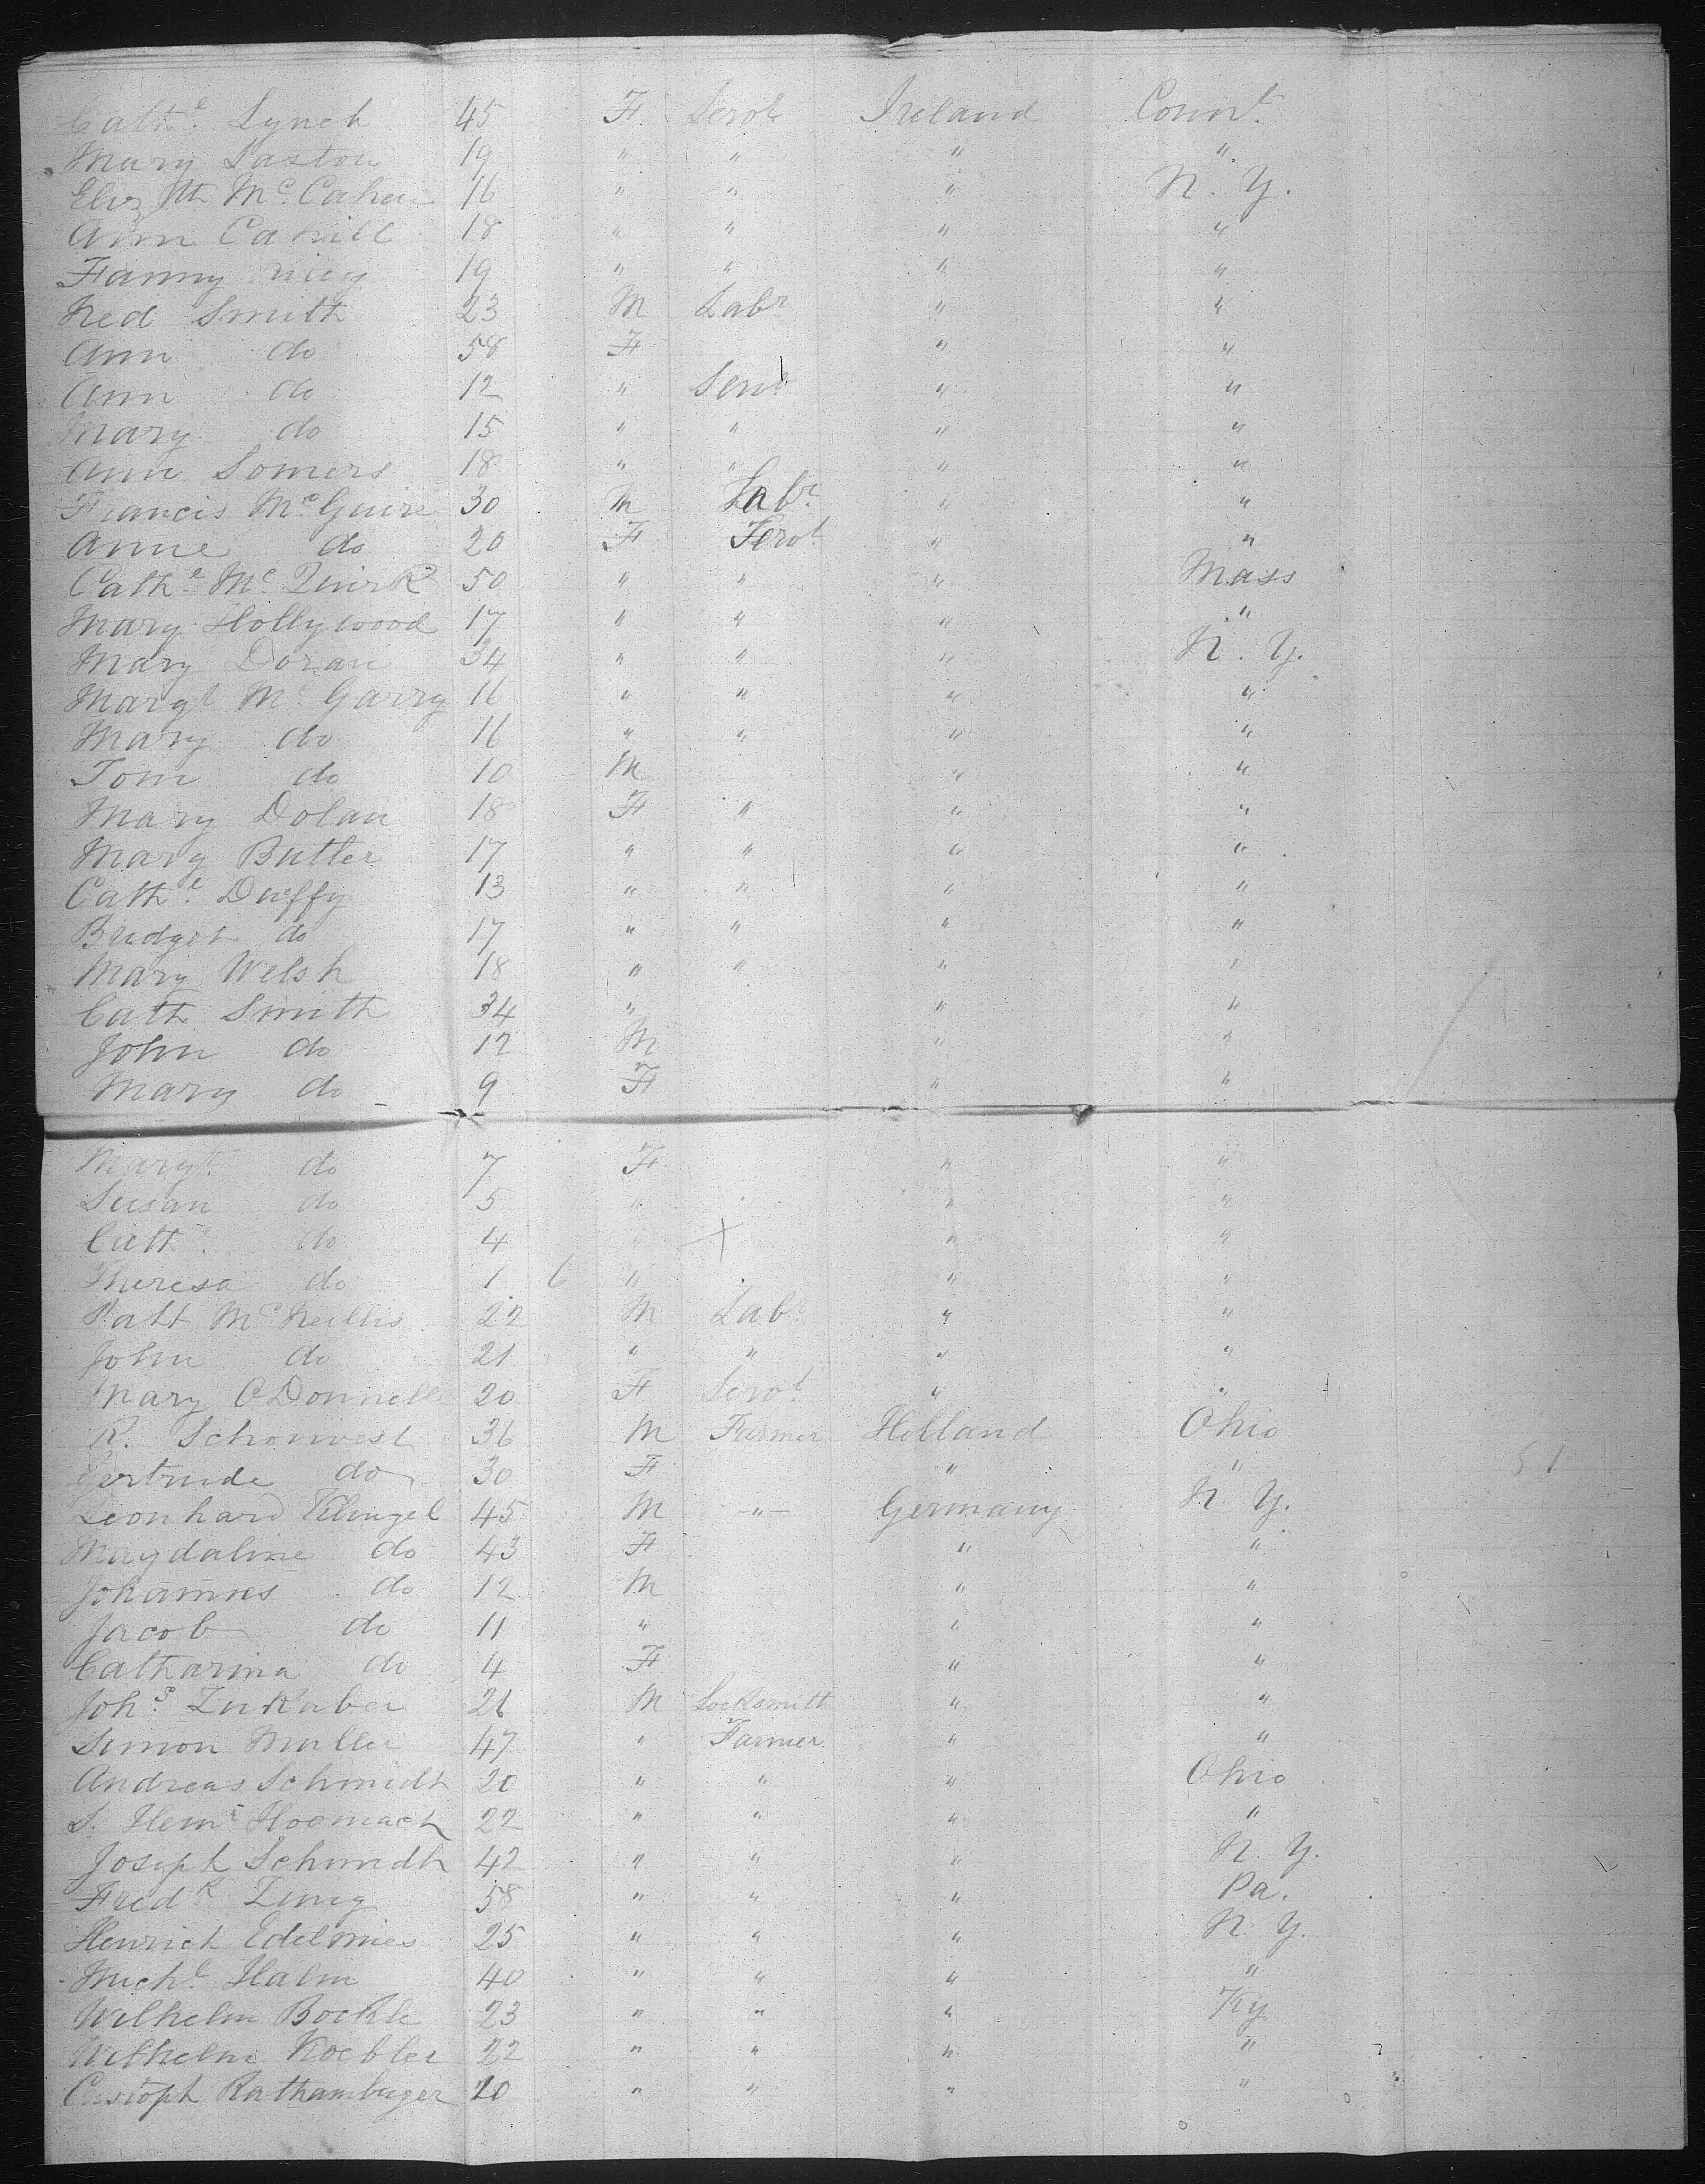 Cathe Lynch 45 F Servt Ireland Connt
Mary Laston 19 " " " "
Elizbth McCahen 16 " " " N. Y.
Ann Cahill 18 " " " "
Fanny Riley 19 " " " "
Ned Smith 23 M Labr " "
Ann do 58 F " "
Ann do 12 " Servt " "
Mary do 15 " " " "
Ann Somers 18 " " " "
Francis McGuire 30 M Labr " "
Anne do 20 F Servt " "
Cathe Mc Quirk 50 " " " Mass
Mary Hollywood 17 " " " "
Mary Doran 34 " " " N. Y.
Margt McGarry 16 " " " "
Mary do 16 " " " "
Tom do 10 M " "
Mary Dolan 18 F " " "
Mary Butler 17 " " " "
Cathe Duffy 13 " " " "
Bridget do 17 " " " "
Mary Welsh 18 " " " "
Cath Smith 34 " " "
John do 12 M " "
Mary do 9 F " "
Margt do 7 F " "
Susan do 5 " " "
Cathe do 4 " " "
Theresa do 1 6 " " "
Patt McNeillis 22 M Labr " "
John do 21 " " " "
Mary ODonnell 20 F Servt " "
R. Schonvest 36 M Farmer Holland Ohio
Gertrude do 30 F " " 51
Leonhard Klingel 45 M -"- Germany N. Y.
Magdaline do 43 F " "
Johannes do 12 M " "
Jacob do 11 " " "
Catharina do 4 F " "
Johs Zukaber 26 M Locksmith " "
Simon Muller 47 " Farmer " "
Andreas Schmidt 20 " " " Ohio
S. Hem Hoemach 22 " " " "
Joseph Schmidth 42 " " " N. Y.
Fredk Zinig 58 " " " Pa.
Henrich Edelmies 25 " " " N. Y.
Michl Halm 40 " " " "
Wilhelm Bockle 23 " " " Ky
Wilhelm Koebler 22 " " " "
Cristoph Rathambuger 20 " " " "